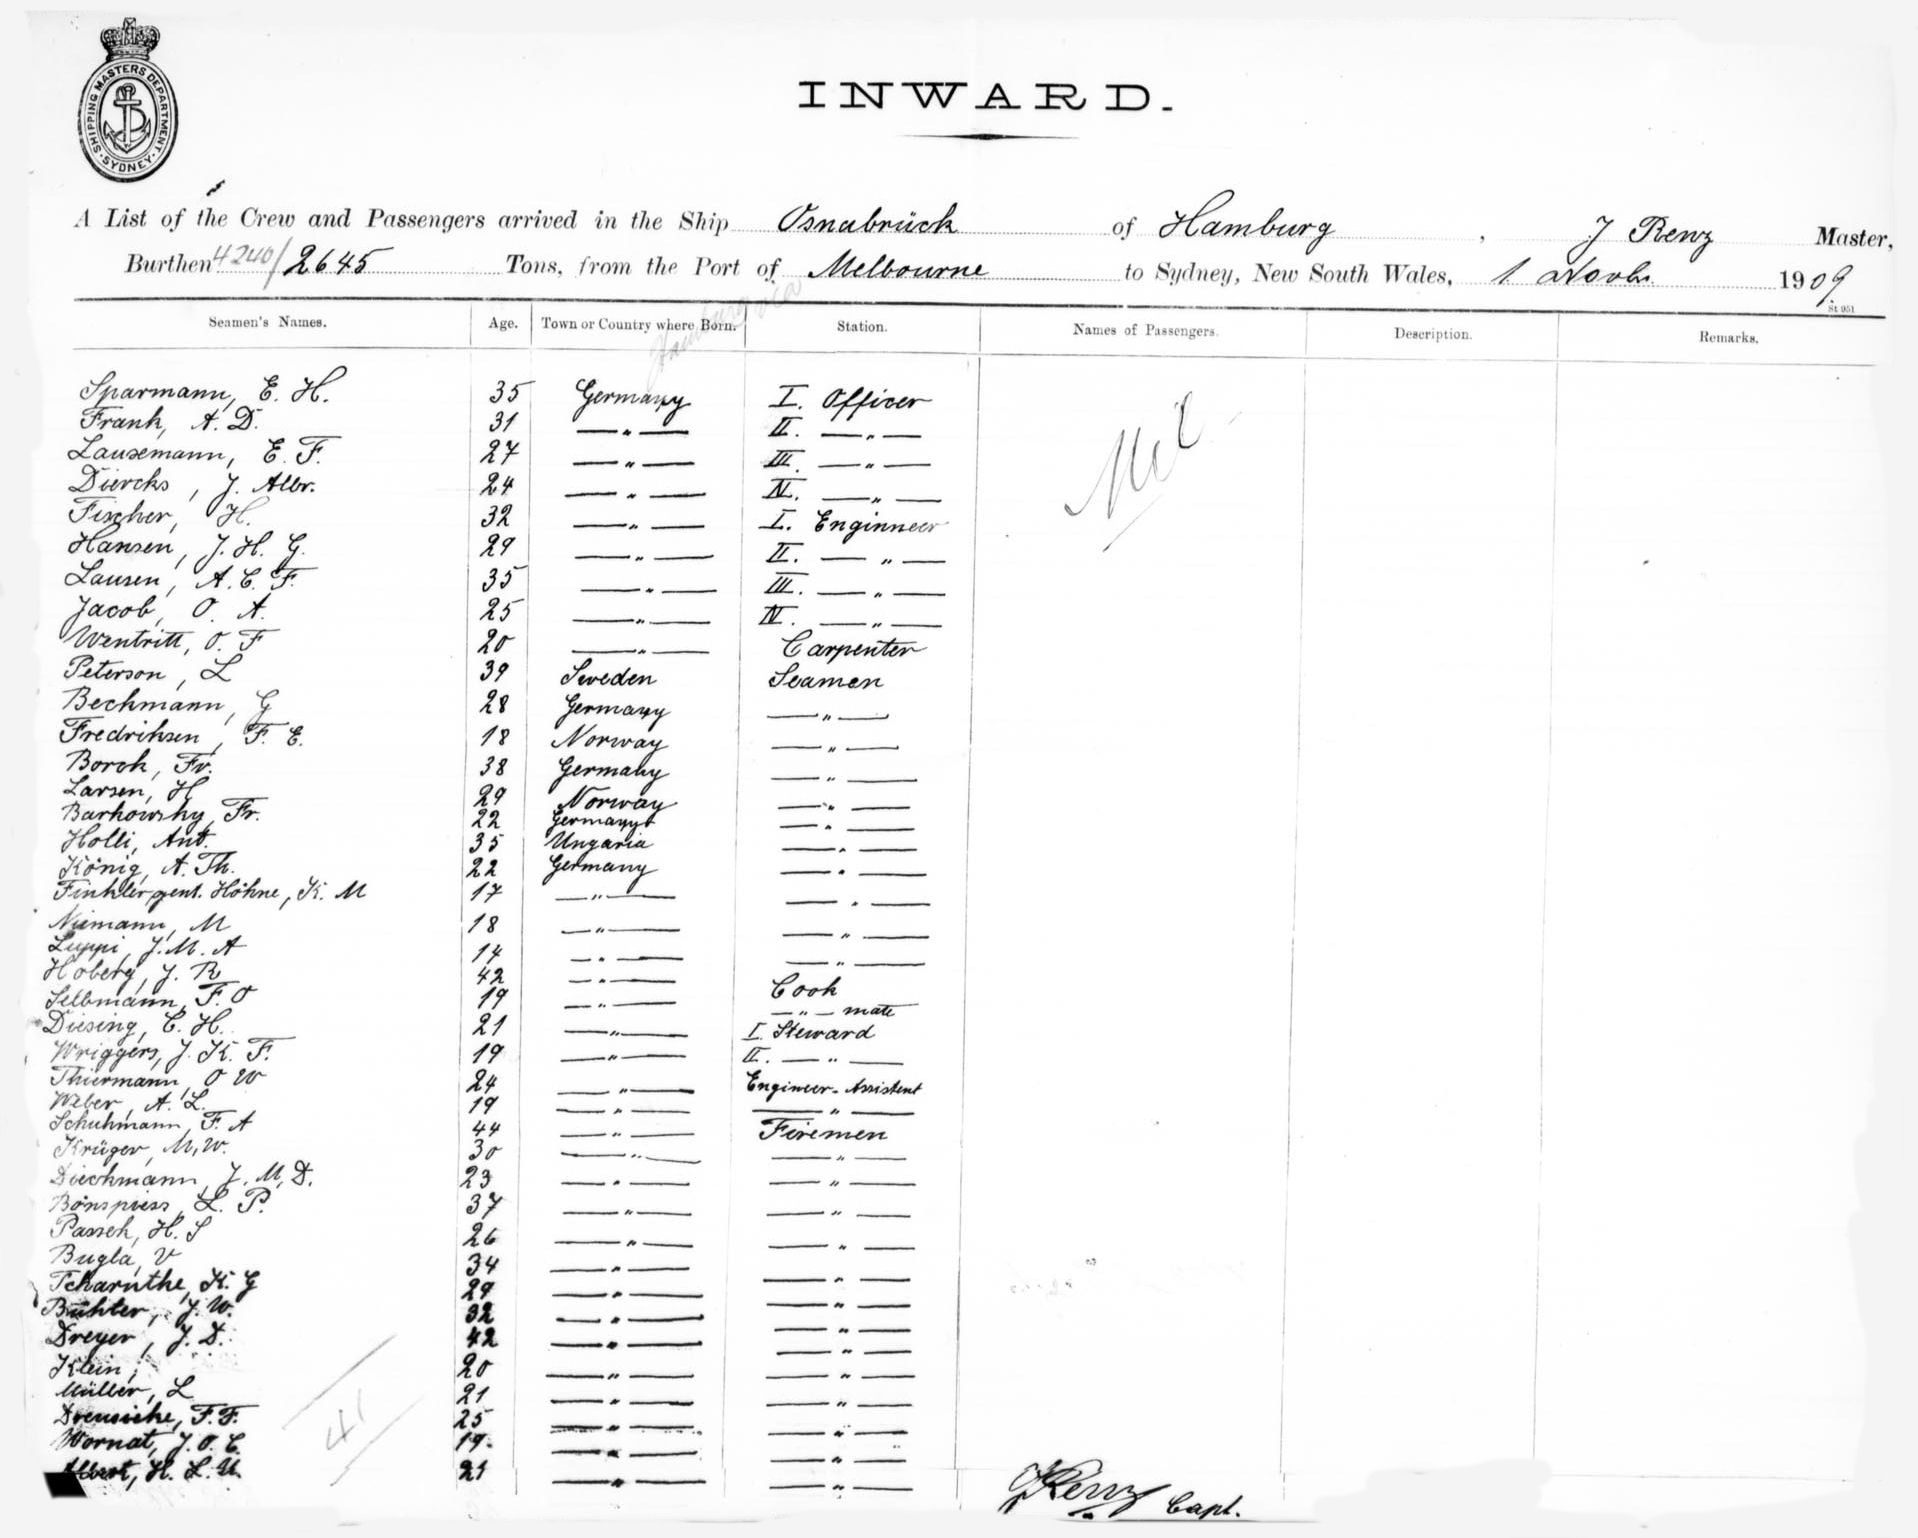 SHIPPING MASTERS DEPARTMENT · SYDNEY ·
INWARD.
A List of the Crew and Passengers arrived in the Ship Osnabrück of Hamburg, J Renz Master,
Burthen 4240/2645 Tons, from the Port of Melbourne to Sydney, New South Wales, 1 Novbr. 1909
Hamburg via
St 951
Seamen's Names. Age. Town or Country where Born. Station. Names of Passengers. Description. Remarks.
Sparmann, E. H. 35 Germany I. Officer
Nil
Frank, A. D. 31 —„— II. —„—
Lausemann, E. F. 27 —„— III. —„—
Diercks, J. Albr. 24 —„— IV. —„—
Fischer, H. 32 —„— I. Enginneer
Hansen, J. H. G. 29 —„— II. —„—
Lausen, A. C. F. 35 —„— III. —„—
Jacob, O. A. 25 —„— IV. —„—
Wentritt, O. F 20 —„— Carpenter
Peterson, L 39 Sweden Seamen
Bechmann, G 28 Germany —„—
Fredriksen, F. E. 18 Norway —„—
Borck, Fr. 38 Germany —„—
Larsen, H 29 Norway —„—
Barkowsky, Fr. 22 Germany —„—
Holli, Ant. 35 Ungaria —„—
König, A. Th. 22 Germany —„—
Finkler gent. Höhne, K. M 17 —„— —„—
Niemann, M 18 —„— —„—
Luppi, J. M. A 14 —„— —„—
Hoberg, J. R 42 —„— Cook
Selbmann, F. O 19 —„— —„— mate
Diesing, C. H. 21 —„— I. Steward
Wriggers, J. K. F. 19 —„— II. —„—
Thiermann, O W 24 —„— Engineer-Assistent
Weber, A. L. 19 —„— —„—
Schuhmann, F. A 44 —„— Firemen
Krüger, M. W. 30 —„— —„—
Dieckmann, J. M. D. 23 —„— —„—
Bönspiess, L. P. 37 —„— —„—
Passeh, H. S 26 —„— —„—
Bugla, V 34 —„— —„—
Tcharnthe, K. G 29 —„— —„—
Bühter, J. W. 32 —„— —„—
Dreyer, J. D. 42 —„— —„—
Klein, 20 —„— —„—
Müller, L 21 —„— —„—
Dreusicke, F. F. 25 —„— —„—
Wornat, J. O. C. 19 —„— —„—
Albert, H. L. U. 21 —„— —„—
41
J Renz Capt.